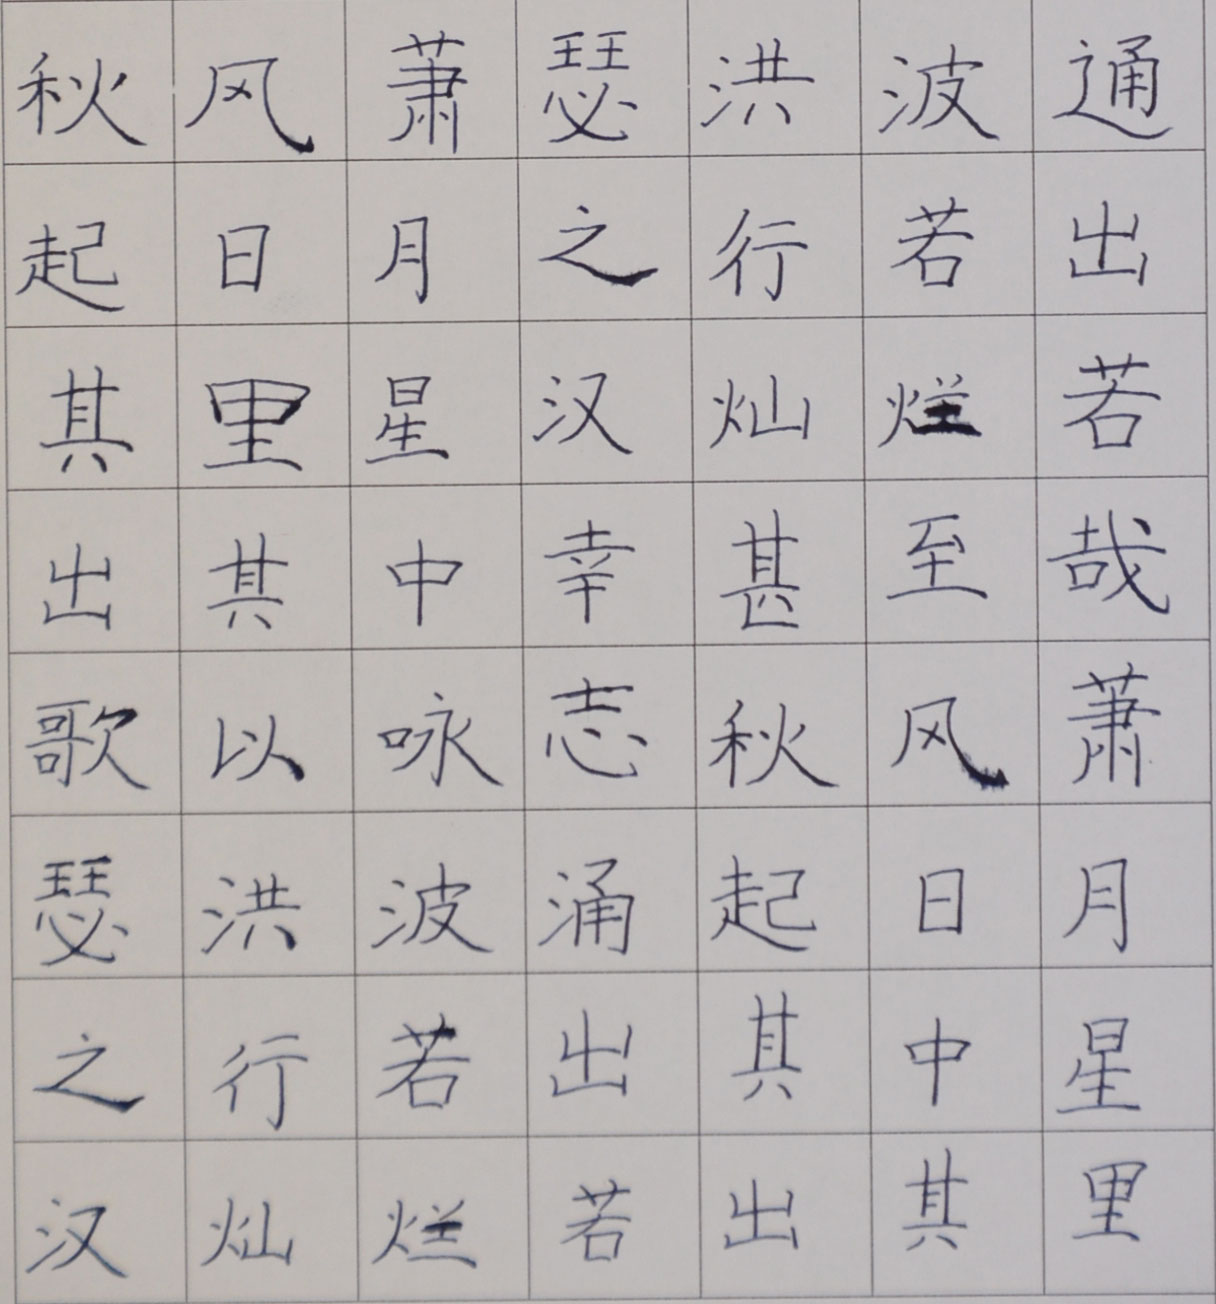 秋风萧瑟洪波通
起日月之行若出
其里星汉灿烂若
出其中幸甚至哉
歌以咏志秋风萧
瑟洪波涌起日月
之行若出其中星
汉灿烂若出其里